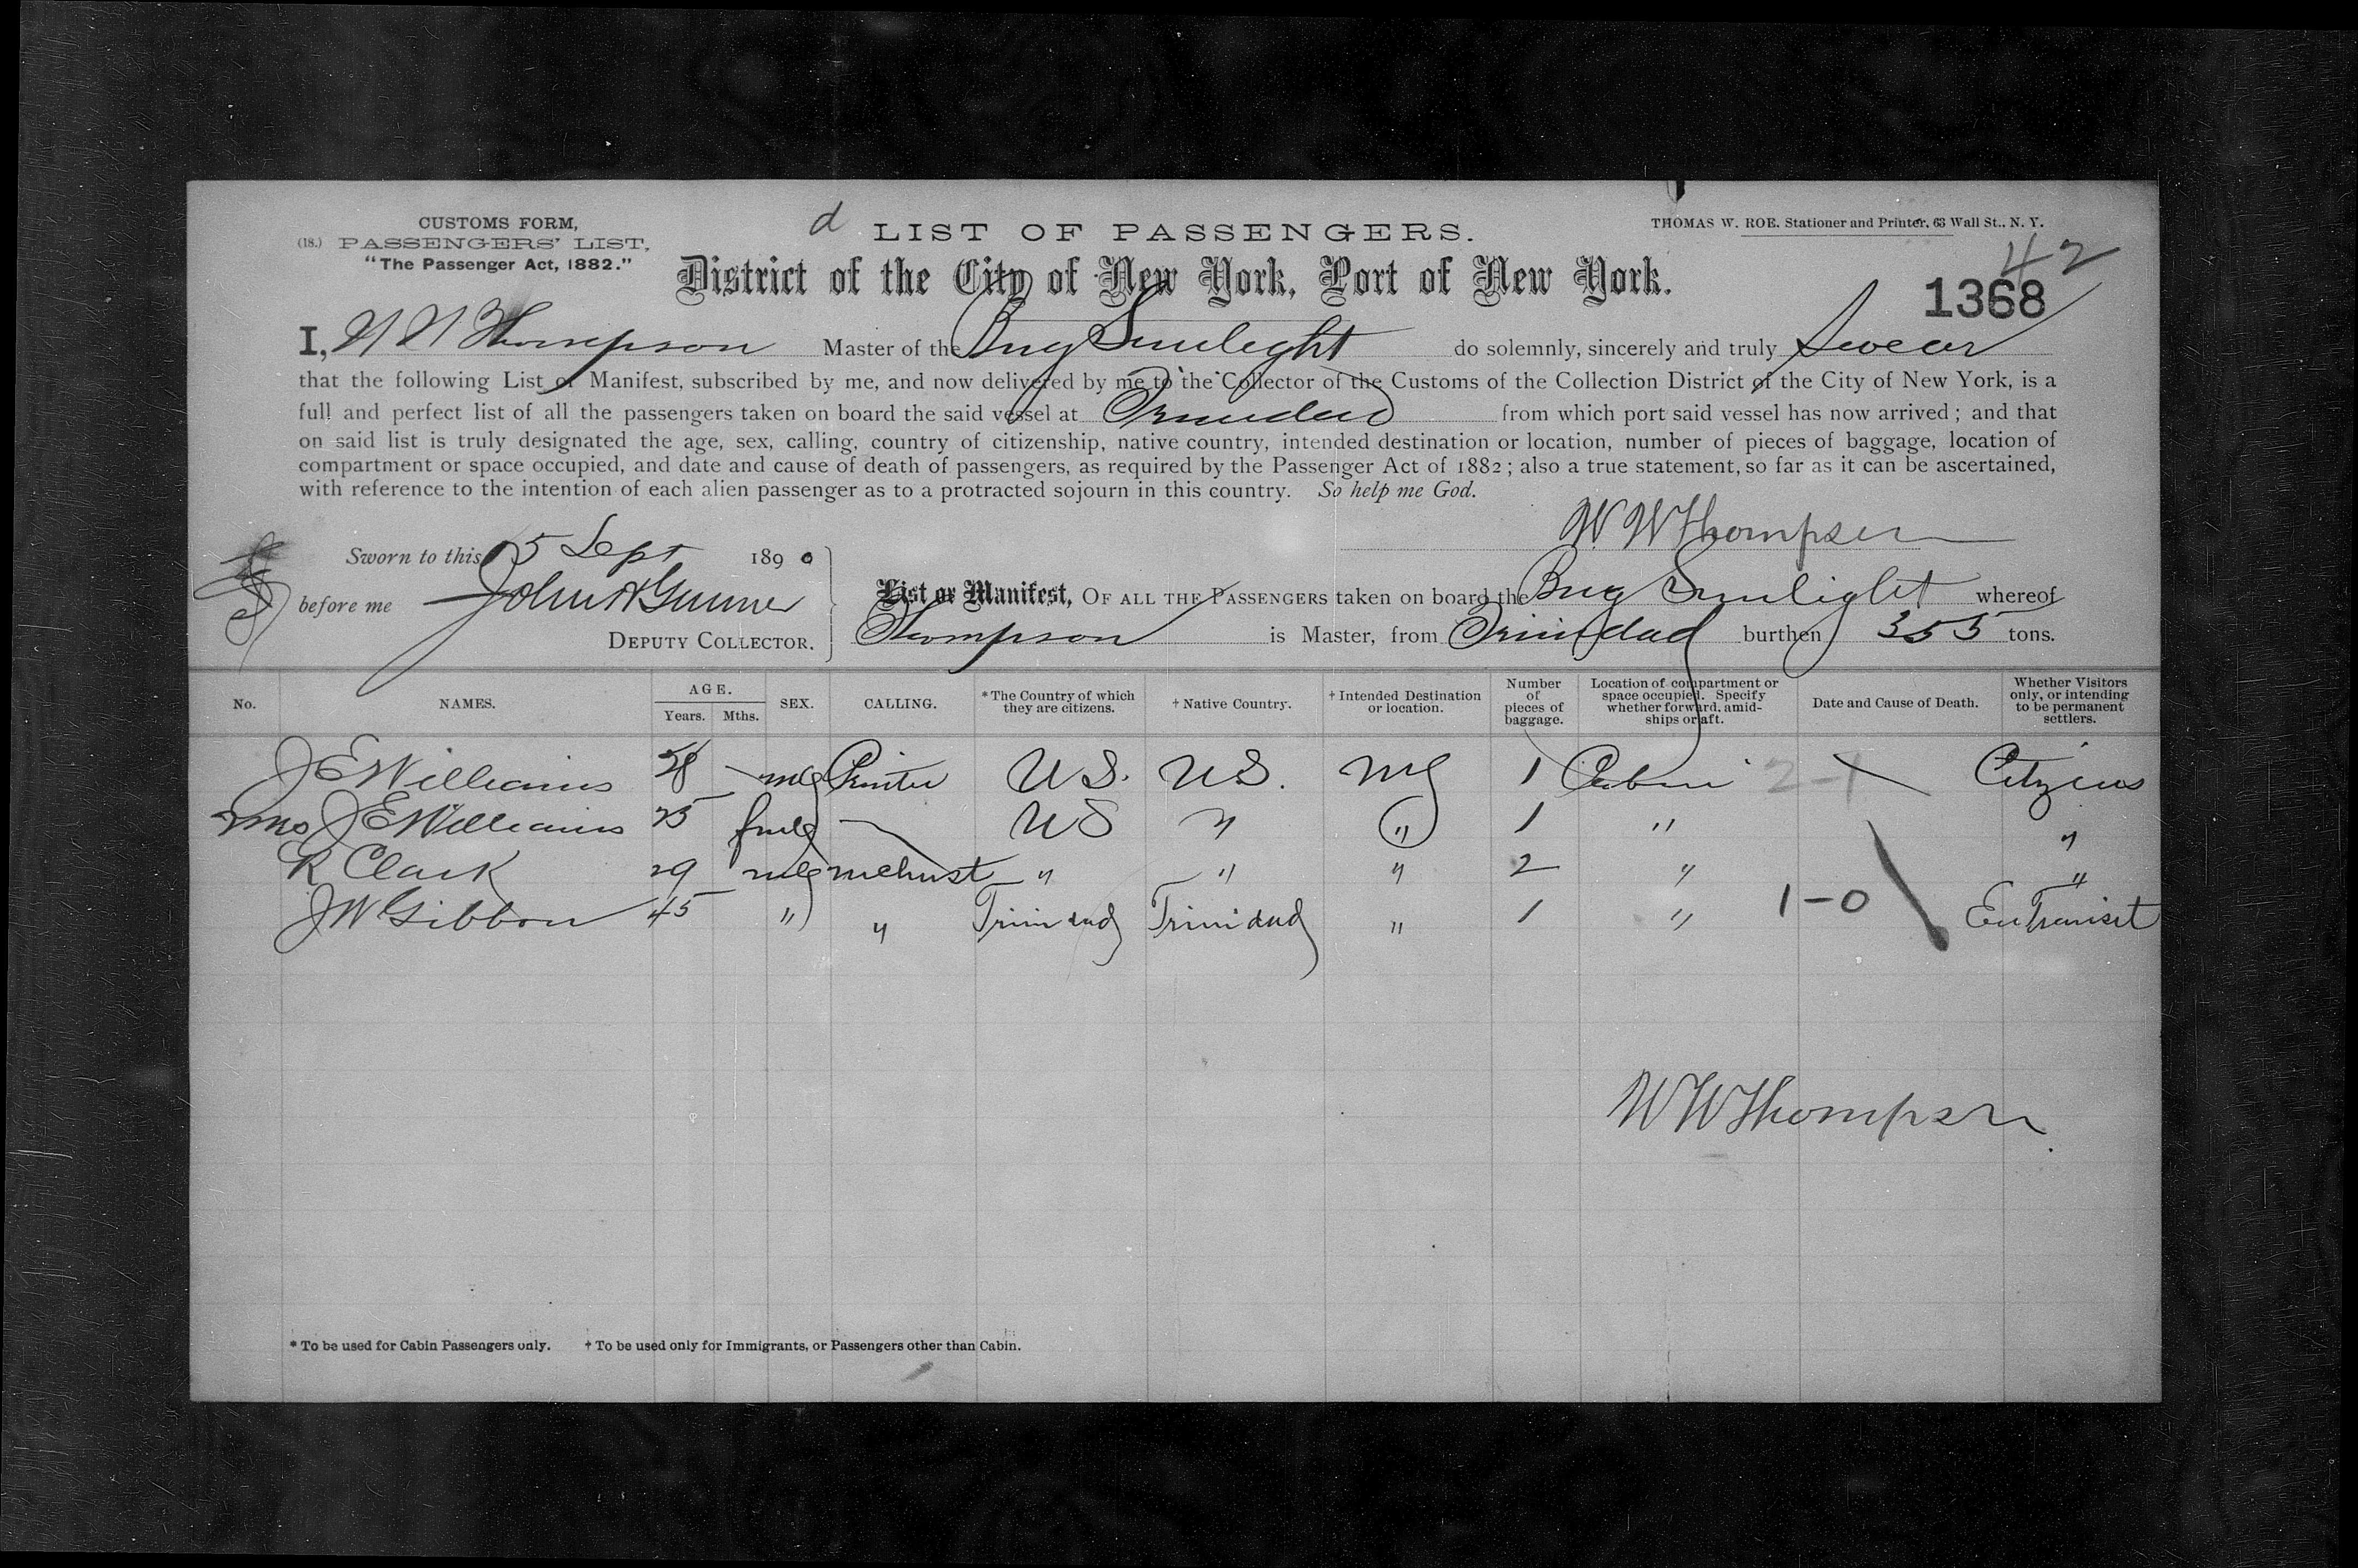 CUSTOMS FORM,
(18.) PASSENGERS' LIST,
"The Passenger Act, 1882."
d LIST OF PASSENGERS.
THOMAS W. ROE. Stationer and Printer, 63 Wall St., N. Y.
District of the City of New York, Port of New York.
42
1368
I, W W Thompson Master of the Brig Sunlight do solemnly, sincerely and truly Swear
that the following List or Manifest, subscribed by me, and now delivered by me to the Collector of the Customs of the Collection District of the City of New York, is a
full and perfect list of all the passengers taken on board the said vessel at Trinidad from which port said vessel has now arrived; and that
on said list is truly designated the age, sex, calling, country of citizenship, native country, intended destination or location, number of pieces of baggage, location of
compartment or space occupied, and date and cause of death of passengers, as required by the Passenger Act of 1882; also a true statement, so far as it can be ascertained,
with reference to the intention of each alien passenger as to a protracted sojourn in this country. So help me God.
W. W Thompson
Sworn to this 15 Sept 1890
before me John A Gunner
DEPUTY COLLECTOR.
List or Manifest, OF ALL THE PASSENGERS taken on board the Brig Sunlight whereof
Thompson is Master, from Trinidad burthen 355 tons.
No. NAMES. AGE. Years. Mths. SEX. CALLING. *The Country of which they are citizens. †Native Country. †Intended Destination or location. Number of pieces of baggage. Location of compartment or space occupied. Specify whether forward, amidships or aft. Date and Cause of Death. Whether Visitors only, or intending to be permanent settlers.
J E Williams 28 — mle Printer U S. U S. NY 1 Cabin 2-1 \ Citizens
Mrs J E Williams 25 fmle — U S " " 1 " "
R Clark 29 mle mchnst " " " 2 " "
J W Gibbon 45 " " Trinidad Trinidad " 1 " 1-0 En Transit
W W Thompson
* To be used for Cabin Passengers only. † To be used only for Immigrants, or Passengers other than Cabin.